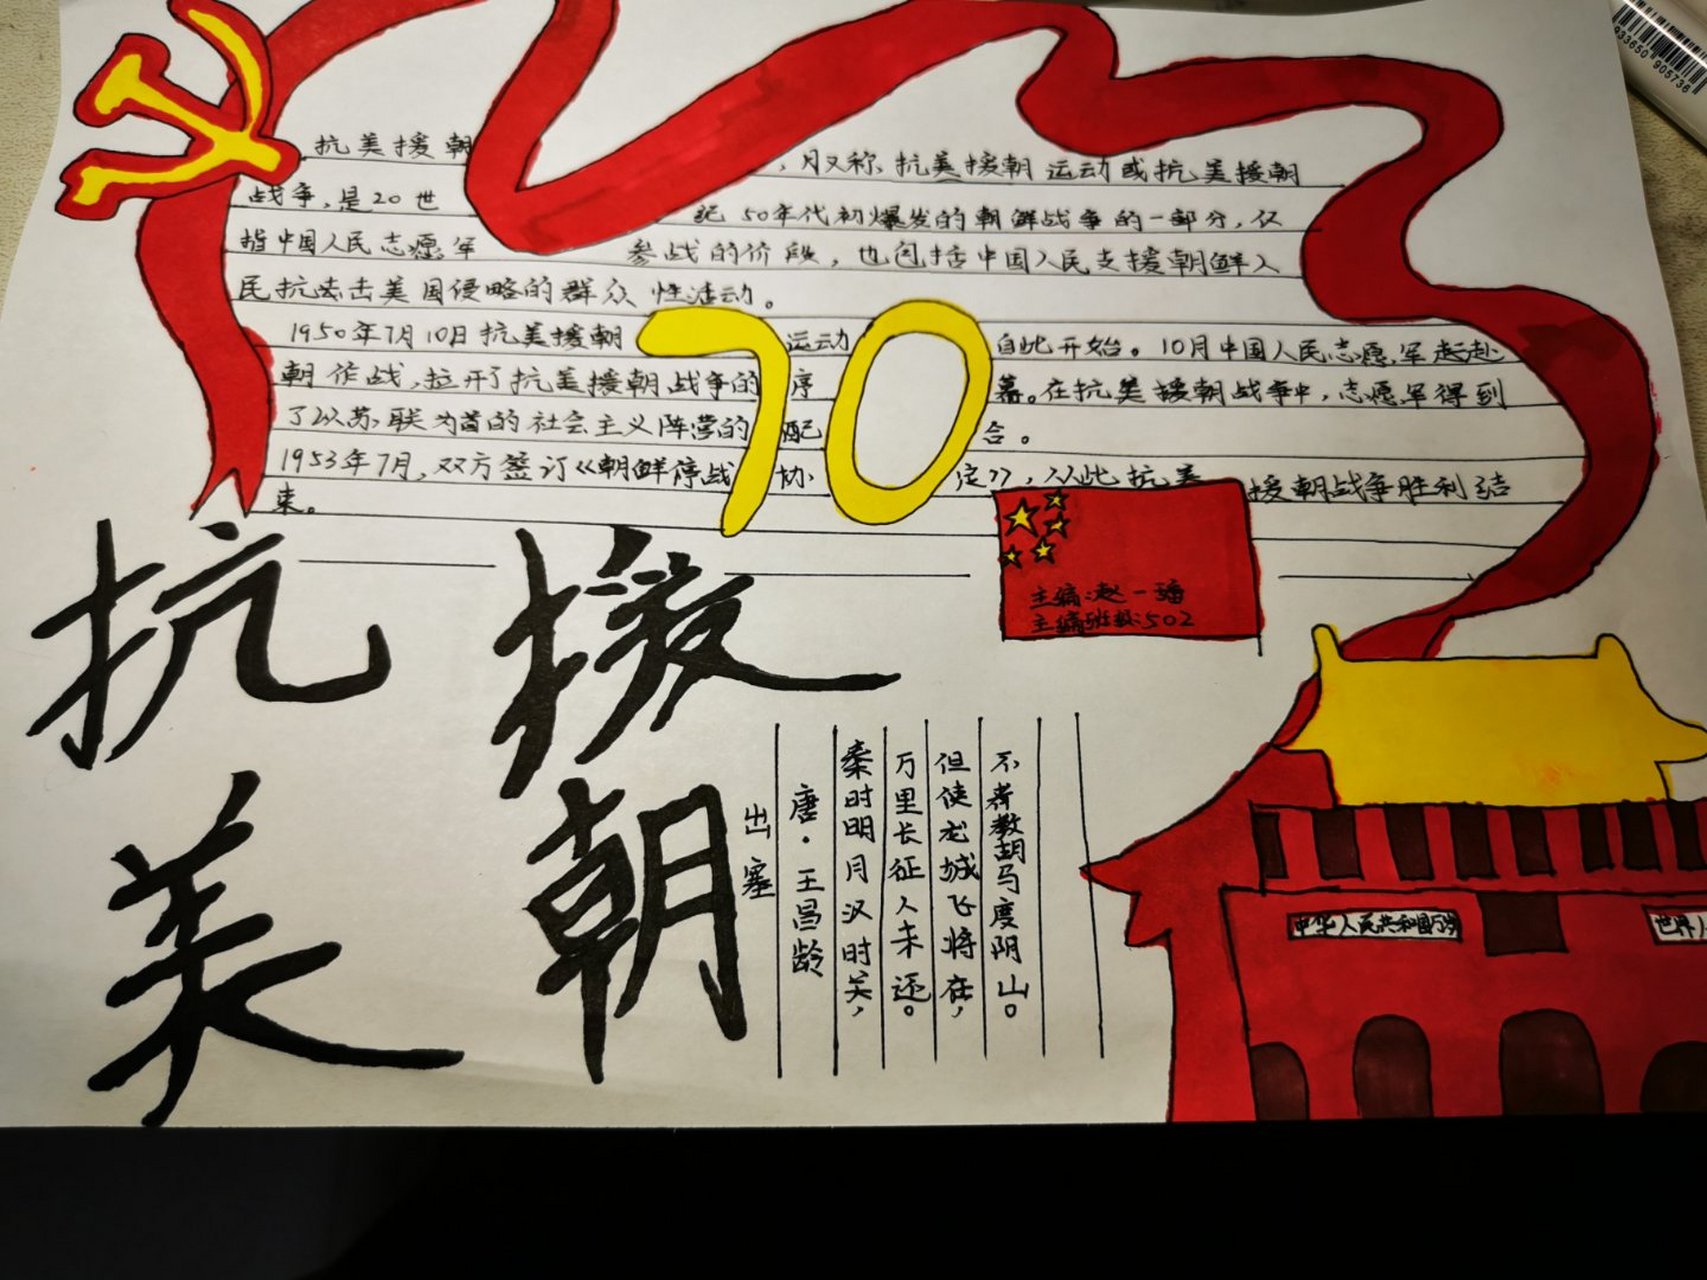 抗美援朝 ,又称抗美援朝运动或抗美援朝
战争,是20世 纪50年代初爆发的朝鲜战争的一部分,仅
指中国人民志愿军 参战的价段,也包括中国人民支援朝鲜人
民抗击美国侵略的群众性活动。
1950年7月10日抗美援朝 运动 自此开始。10月中国人民志愿军赴
朝作战,拉开了抗美援朝战争的序 幕。在抗美援朝战争中,志愿军得到
了以苏联为首的社会主义阵营的配 合。
1953年7月,双方签订《朝鲜停战协 定》,从此抗美 援朝战争胜利结
束。
70
主编:赵一
主编班级:502
抗 援
美 朝
出塞
唐·王昌龄
秦时明月汉时关,
万里长征人未还。
但使龙城飞将在,
不教胡马度阴山。
中华人民共和国万岁
世界人
933650 905736